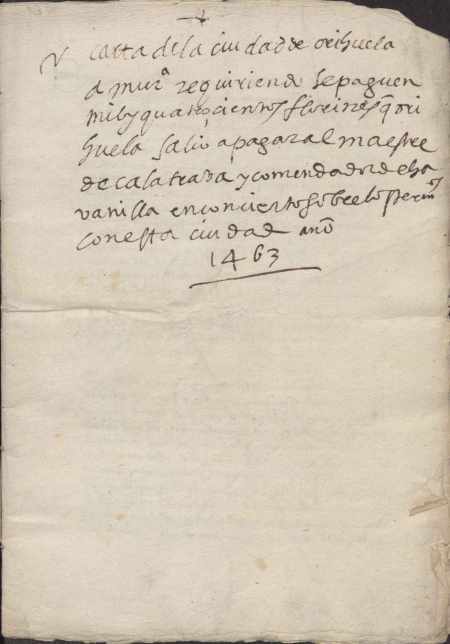 carta de la ciudad de orihuela
a murª requiriendo se paguen
mil y quatrocientos florines q ori
huela salio a pagar al maestre
de calatraba y comendador de ha
vanilla en concierto sobre los termos
con esta ciudad año
1463